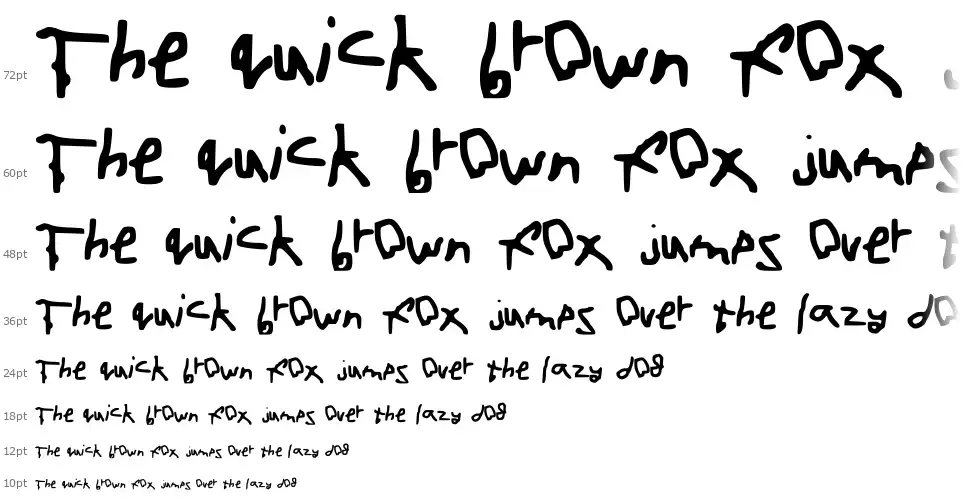 72pt The quick brown fox
60pt The quick brown fox jumps
48pt The quick brown fox jumps over
36pt The quick brown fox jumps over the lazy do
24pt The quick brown fox jumps over the lazy dog
18pt The quick brown fox jumps over the lazy dog
12pt The quick brown fox jumps over the lazy dog
10pt The quick brown fox jumps over the lazy dog